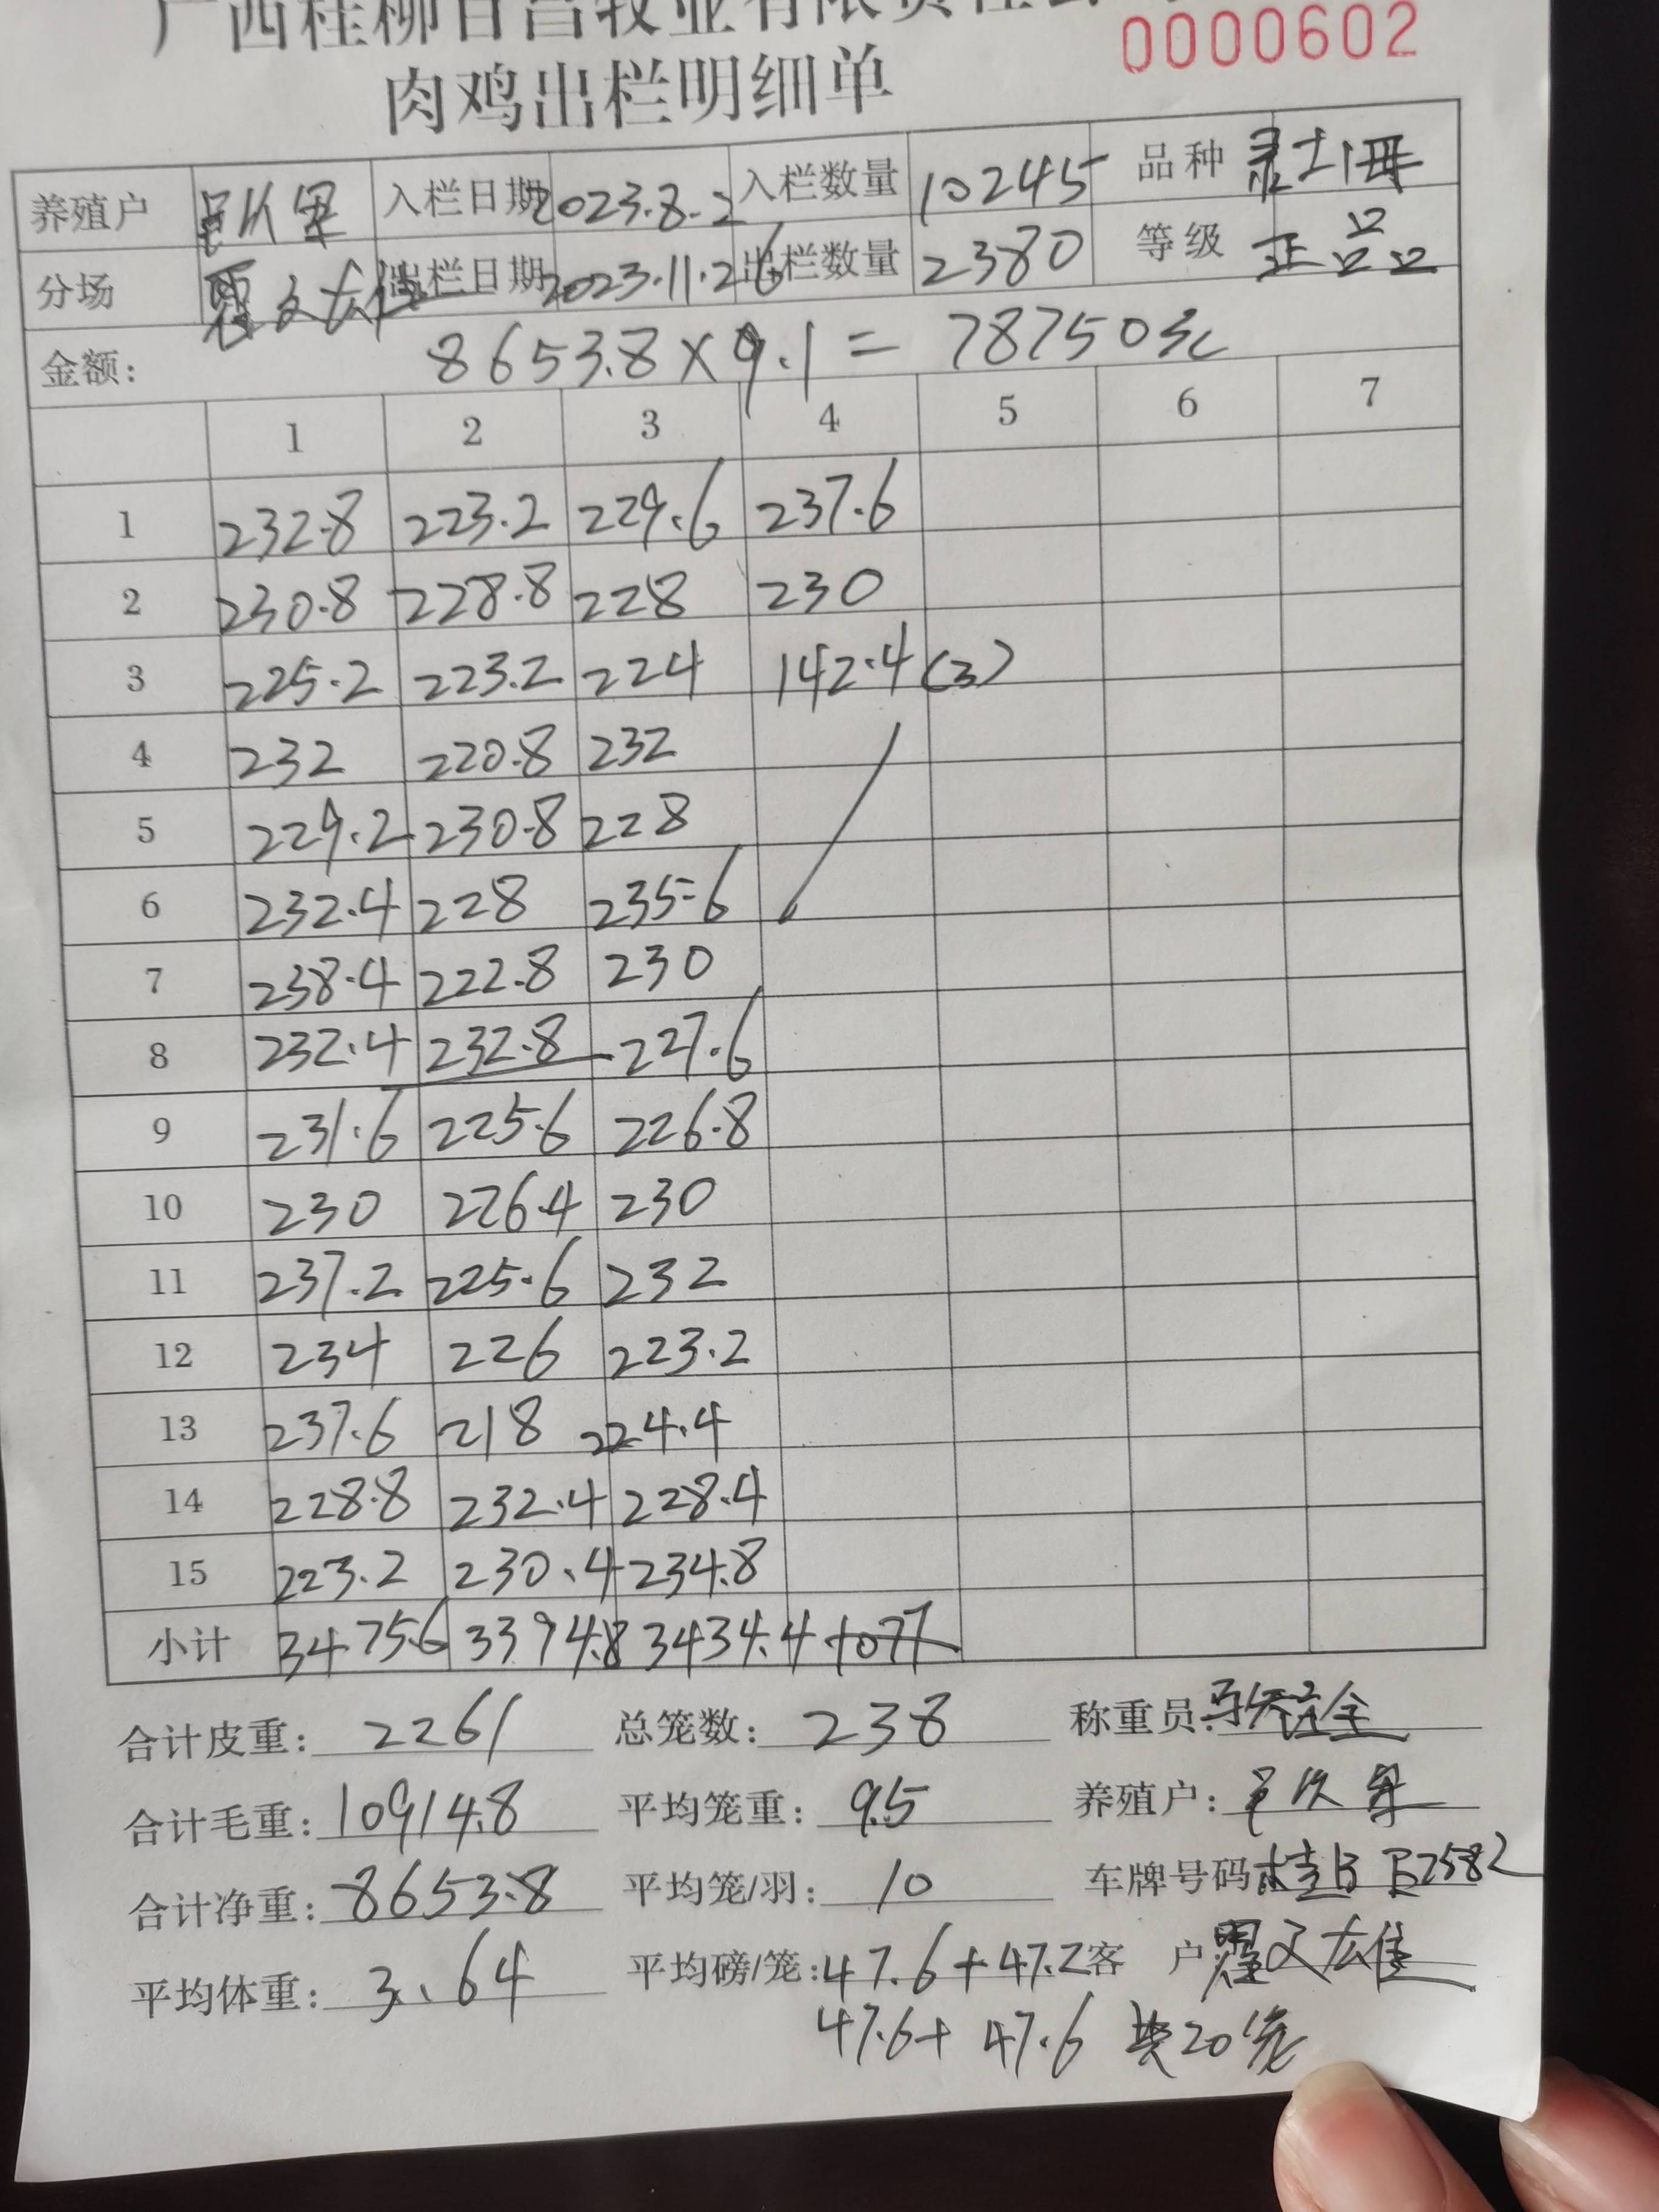 广西桂柳百昌牧业有限责任公司
0000602
肉鸡出栏明细单
养殖户 入栏日期 2023.8.2 入栏数量 10245 品种
分场 出栏日期 2023.11.26 出栏数量 2380 等级 正品
金额: 8653.8×9.1=78750元
1 2 3 4 5 6 7
1 232.8 223.2 229.6 237.6
2 230.8 228.8 228 230
3 225.2 223.2 224 142.4(3)
4 232 220.8 232
5 229.2 230.8 228
6 232.4 228 235.6
7 238.4 222.8 230
8 232.4 232.8 227.6
9 231.6 225.6 226.8
10 230 226.4 230
11 237.2 225.6 232
12 234 226 223.2
13 237.6 218 224.4
14 228.8 232.4 228.4
15 223.2 230.4 234.8
小计 3475.6 3394.8 3434.4
合计皮重: 2261 总笼数: 238 称重员:
合计毛重: 10914.8 平均笼重: 9.5 养殖户:
合计净重: 8653.8 平均笼/羽: 10 车牌号码
平均体重: 3.64 平均磅/笼: 47.6+47.2 客户
47.6+47.6 共20笼